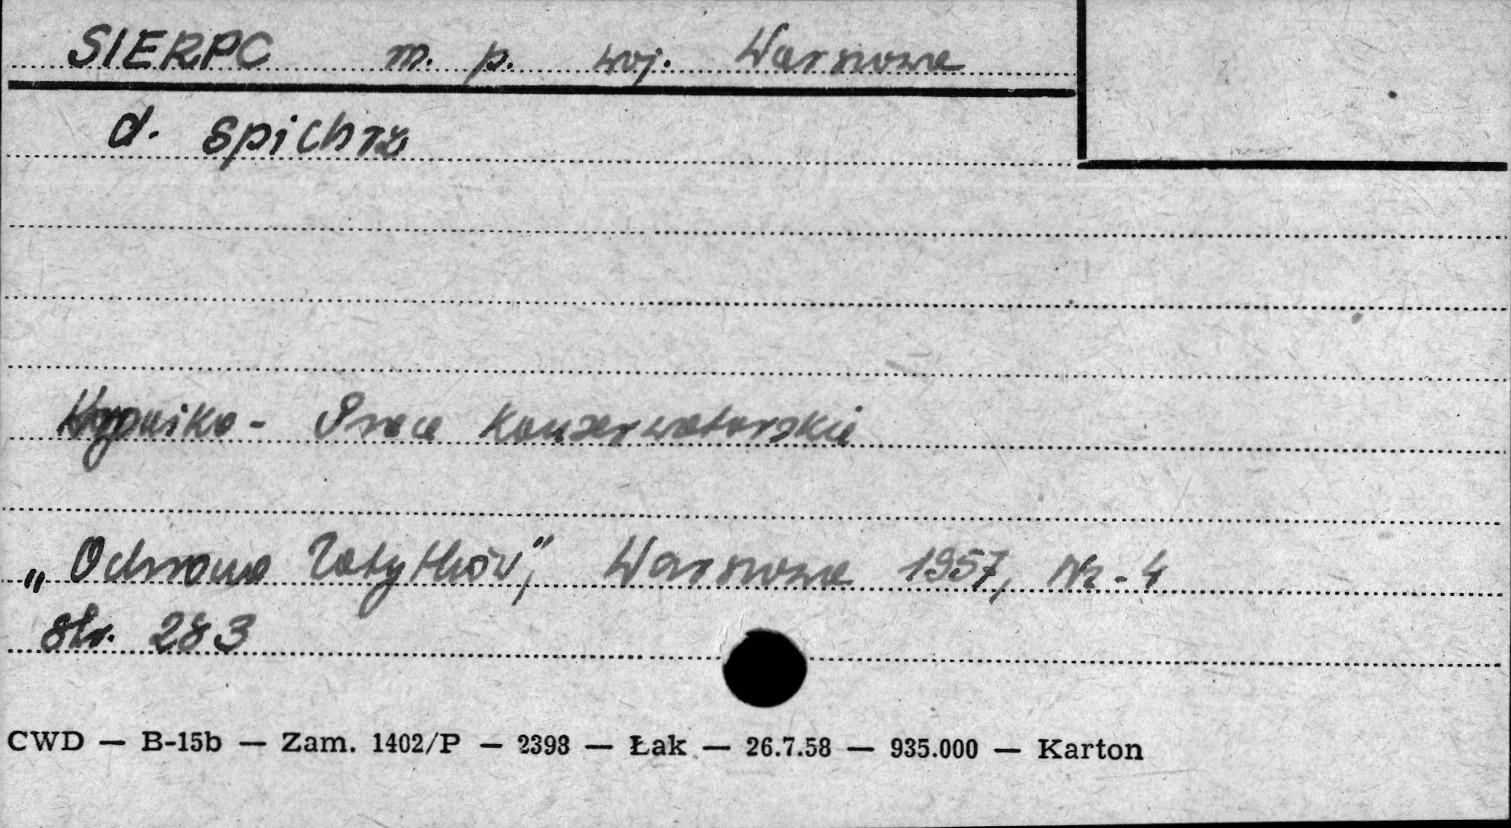 SIERPC m. p. woj. Warszawa
d. spichrz
Kronika - Prace Konserwatorskie
„Ochrona Zabytków”, Warszawa 1957, Nr - 4
str. 283
CWD — B-15b — Zam. 1402/P — 2398 — Łak — 26.7.58 — 935.000 — Karton